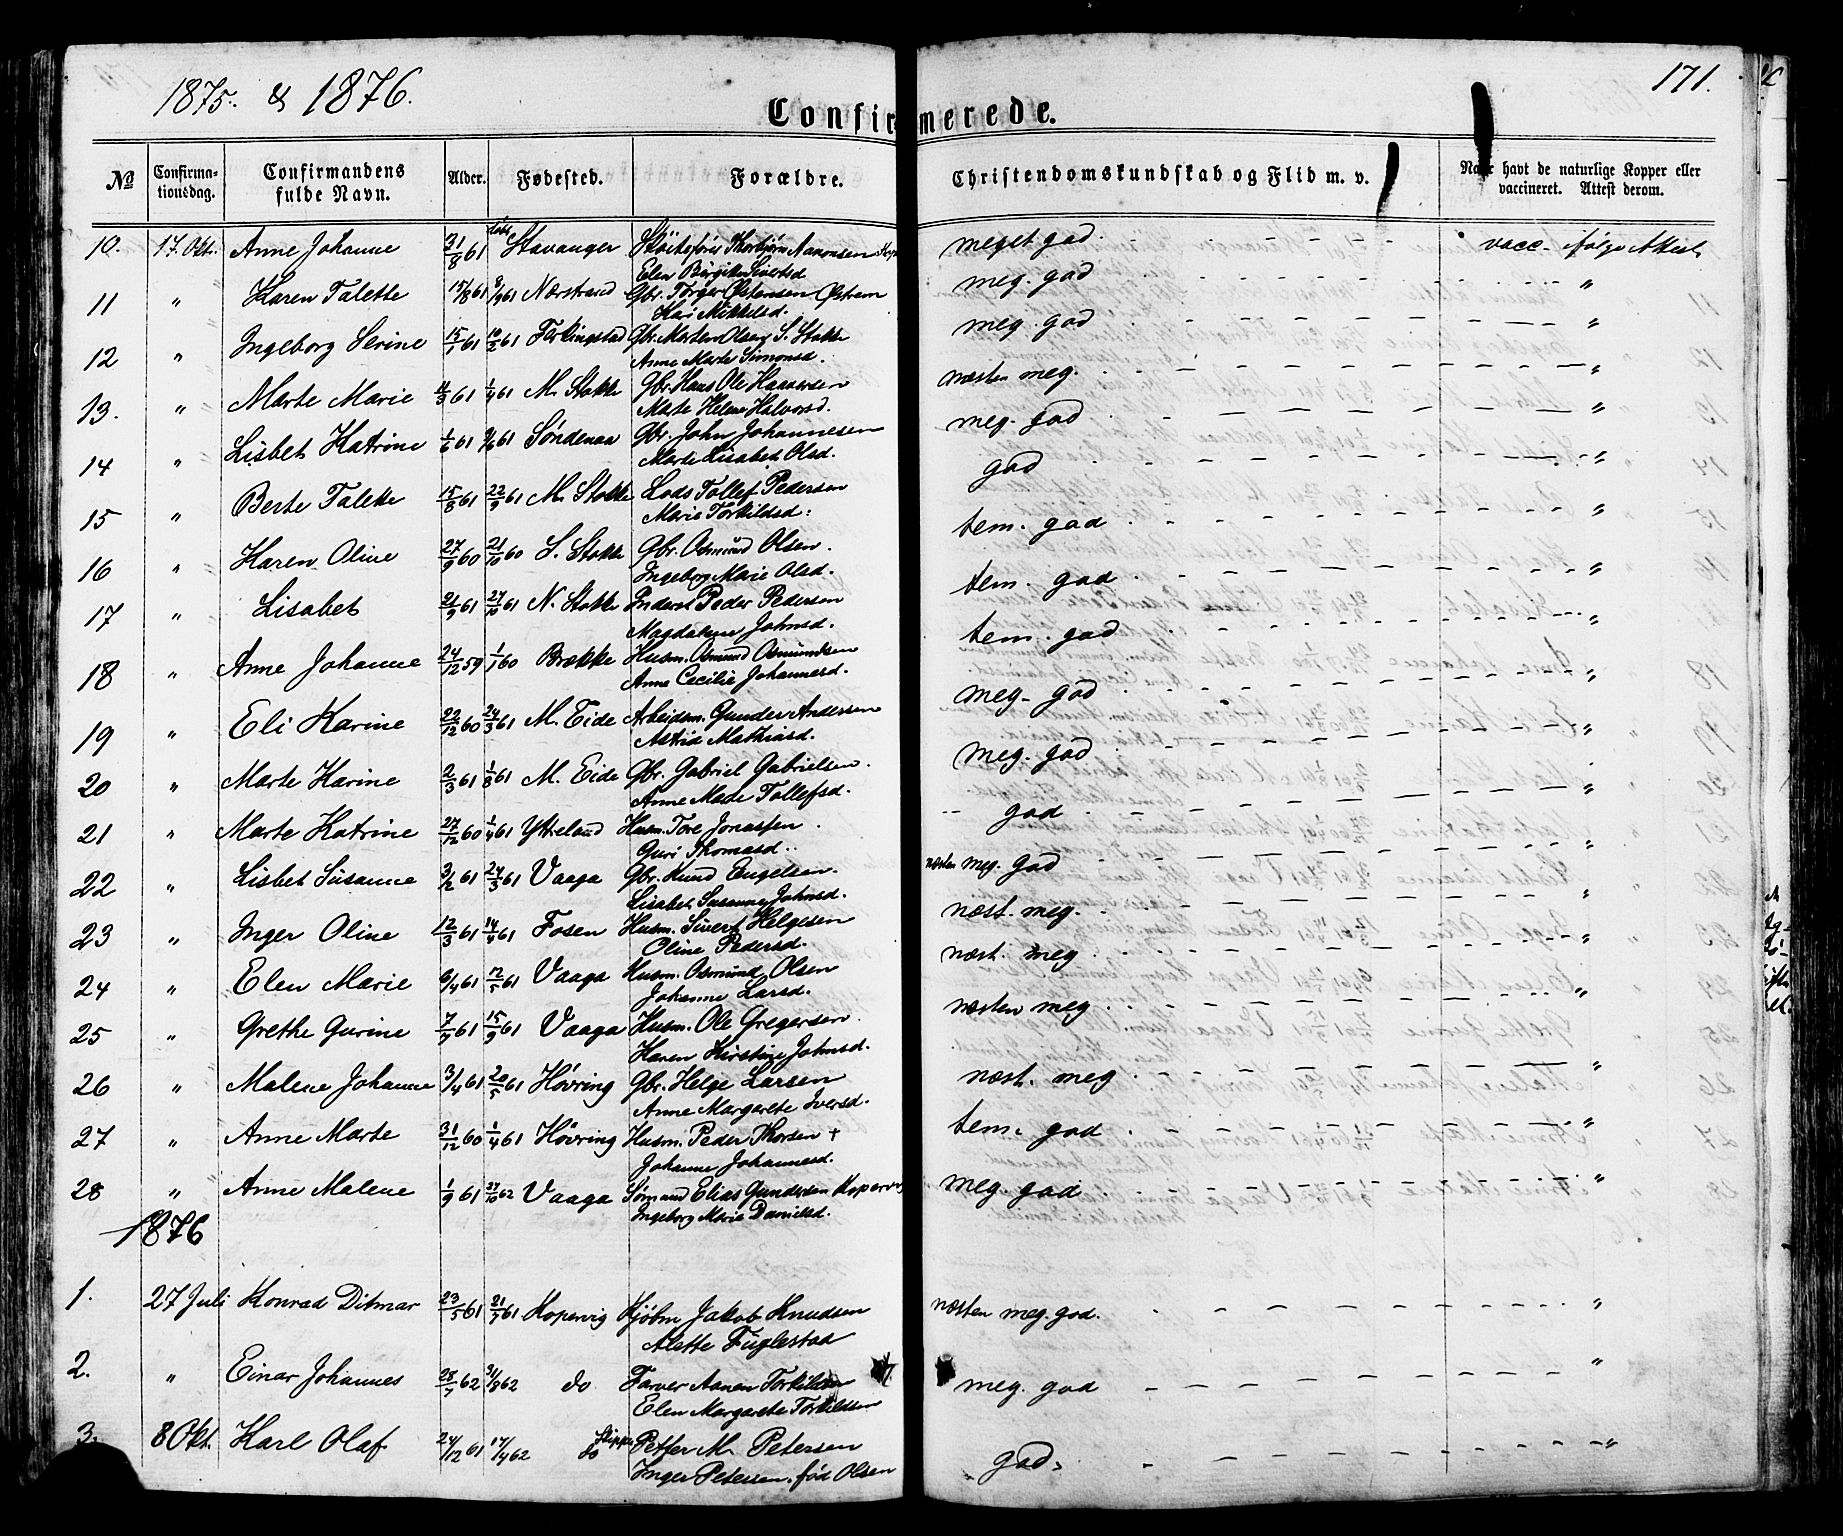 1875. & 1876. 171.
Confirmerede.
No Confirmationsdag. Confirmandens fulde Navn. Alder. Fødested. Forældre. Christendomskundskab og Flid m. v. Naar havt de naturlige Kopper eller vaccineret. Attest derom.
10. 17. Okt. Anne Johanne 31/8 61 Stavanger Thorbjørn Aanonsen meget god. vacc. ifølge Attest
Elen Birgitte Sivertsd.
11 " Karen Talette 15/8 61 8/9 61 Nærstrand Gbr. Torger Østensen Østrem meg. god "
Kari Mikkelsd.
12 " Ingeborg Serine 15/1 61 10/2 61 Førkingstad Gbr. Morten Olsen S. Stokke meg. god "
Anne Marte Simonsd.
13. " Marte Marie 11/3 61 1/4 61 M. Stokke Gbr. Hans Ole Haaversen næsten meg. "
Marte Helene Halvorsd.
14 " Lisbet Katrine 1/6 61 9/6 61 Søndenaa Gbr. John Johannesen meg. god "
Marte Lisabet Olsd.
15 " Berte Talette 15/8 61 22/9 61 M. Stokke Lods Tollef Pedersen god "
Marie Torkildsd.
16 " Karen Oline 27/9 60 21/10 60 S. Stokke Gbr. Osmund Olsen. tem. god "
Ingeborg Marie Olsd.
17 " Lisabet 21/9 61 27/10 61 N. Stokke Inderst Peder Pedersen tem. god "
Magdalene Johnsd.
18 " Anne Johanne 24/12 59 1/1 60 Brekke Husm. Osmund Osmundsen tem. god "
Anne Cecilie Johannesd.
19 " Eli Karine 22/12 60 24/3 61 M. Eide Arbeidsm. Gunder Andersen meg. god "
Astrid Mathiasd.
20 " Marte Karine 2/3 61 1/8 61 M. Eide Gbr. Gabriel Gabrielsen. meg. god "
Anne Marte Tollefsd.
21 " Marte Katrine 27/12 60 1/4 61 Ytreland Husm. Tore Jonassen god "
Guri Thomasd.
22 " Lisbet Susanne 3/2 61 24/3 61 Vaaga Gbr. Knud Engelsen. næsten meg. god "
Lisabet Susanne Johnsd.
23 " Inger Oline 12/3 61 14/4 61 Fosen Husm. Sivert Helgesen næst. meg. "
Oline Pedersd.
24 " Elen Marie 6/4 61 12/5 61 Vaaga Husm. Osmund Olsen næst. meg "
Johanne Larsd.
25 " Grethe Gurine 7/7 61 15/9 61 Vaaga Husm. Ole Gregersen. næsten meg "
Karen Kirstine Johnsd.
26 " Malene Johanne 3/4 61 20/5 61 Høvring Gbr. Helge Larsen næst. meg "
Anne Margarete Iversd.
27 " Anne Marte 31/12 60 1/4 61 Høvring Husm. Peder Thorsen + tem. god "
Johanne Johannesd.
28 " Anne Malene 1/9 61 27/10 62 Vaaga Sømand Elias Gundersen Kopervig meg. god "
Ingeborg Marie Danielsd.
1876
1. 27 Juli Konrad Ditmar 23/5 61 21/7 61 Kopervig Kjøbm Jakob Knudsen næsten meg. god. "
Alette Fuglestad
2. " Einar Johannes 28/7 62 31/8 62 do Farver Aanen Torkildsen meg. god "
Elen Margarete Torkildsen
3. 8 Okt. Karl Olaf 24/12 61 17/4 62 do Skipper Petter M. Petersen god. "
Inger Petersen. fød Olsen